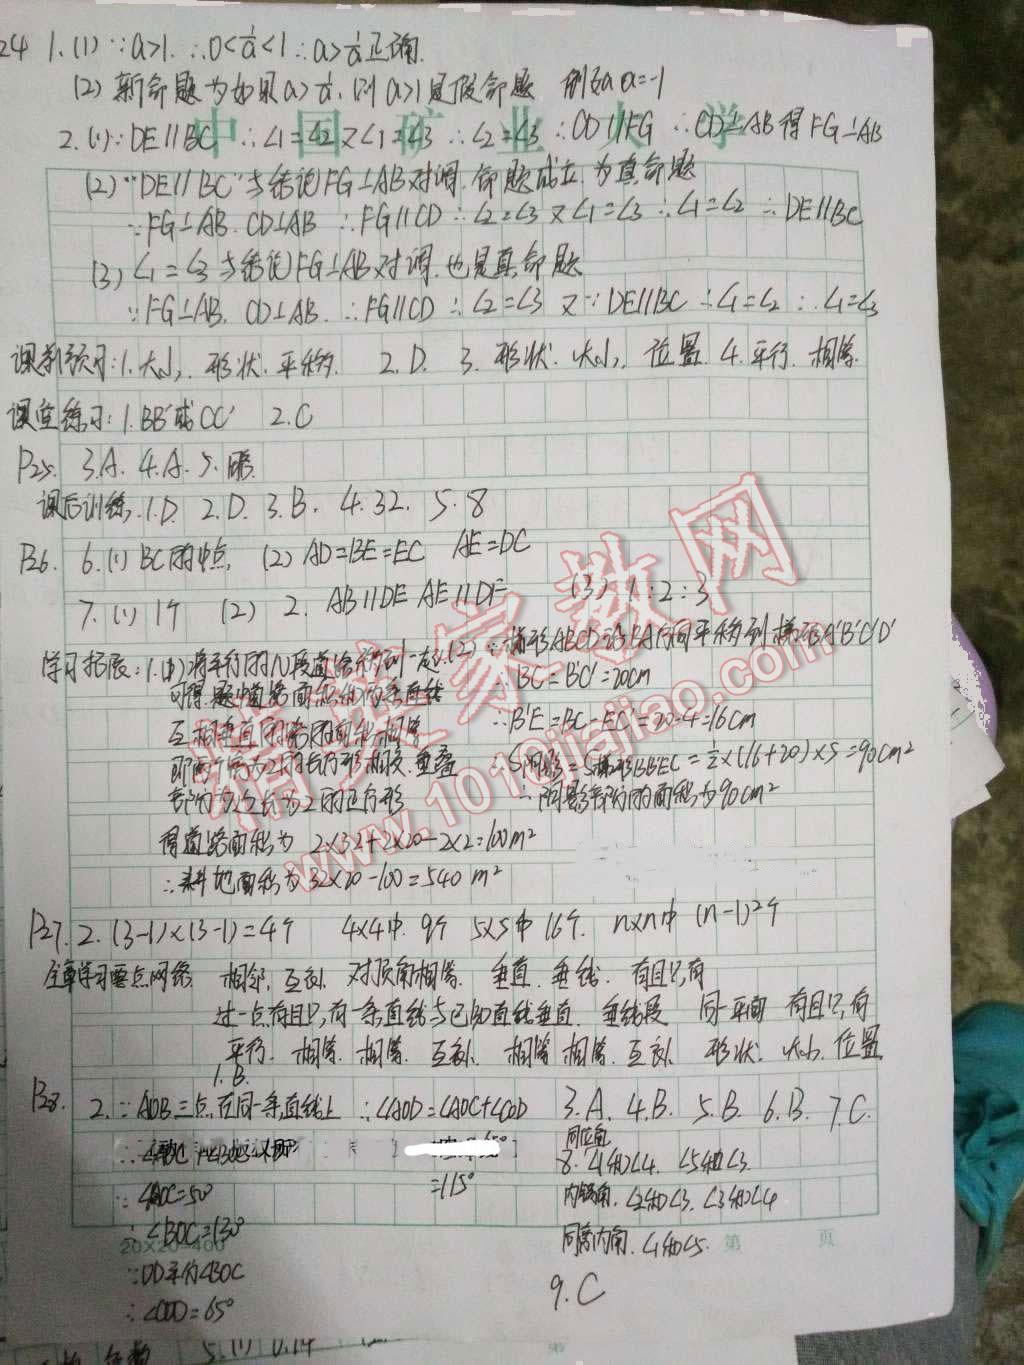 24 1.(1)∵a>1.∴0<1/a<1∴a>1/a正确.
(2)新命题为如果a>1/a,则a>1是假命题 例如a=-1
中国矿业大学
2.(1)∵DE∥BC ∴∠1=∠2又∠1=∠3∴∠2=∠3∴CD∥FG∴CD⊥AB得FG⊥AB
(2)"DE∥BC"与结论FG⊥AB对调.命题成立.为真命题
∵FG⊥AB.CD⊥AB ∴FG∥CD∴∠2=∠3又∠1=∠3∴∠1=∠2∴DE∥BC
(3)∠1=∠3与结论FG⊥AB对调.也是真命题
∵FG⊥AB.CD⊥AB.∴FG∥CD∴∠2=∠3又∵DE∥BC∴∠1=∠2∴∠1=∠3
课前预习:1.大小.形状.平移. 2.D. 3.形状.大小.位置.4.平行.相等.
课堂练习:1.BB'或CC' 2.C
P25. 3.A. 4.A. 5.
课后训练.1.D. 2.D. 3.B. 4.32. 5.8
P26. 6.(1)BC的中点. (2)AD=BE=EC AE=DC
7.(1)1个 (2)2. AB∥DE AE∥DF (3)1:2:3
学习拓展:1.(1)将平行的小段道路移到一起.(2)∵梯形ABCD沿BA方向平移到梯形A'B'C'D'
可得.题中道路面积和两条直线 ∴BC=B'C'=20cm
互相垂直的路的面积相等 ∴B'E=BC-EC'=20-4=16cm
即两个宽为2的长方形相交.重叠 ∴S阴影=S梯形BB'EC=1/2×(16+20)×5=90cm²
部分为边长为2的正方形 ∴阴影部分的面积为90cm²
得道路面积为 2×32+2×20-2×2=100m²
∴耕地面积为32×20-100=540m²
精英家教网
www.1010jiajiao.com
P27.2.(3-1)×(3-1)=4个 4×4中.9个 5×5中16个. n×n中 (n-1)²个
全章学习要点网络 相邻.互补 对顶角相等. 垂直.垂线. 有且只有
过一点有且只有一条直线与已知直线垂直. 垂线段 同一平面 有且只有
平行.相等.相等.互补.相等 相等.互补.形状.大小.位置
1.B.
P28. 2.∵AOB三点在同一条直线上 ∴∠AOD=∠AOC+∠COD 3.A. 4.B. 5.B. 6.B. 7.C.
同位角
8.∠1和∠4. ∠5和∠3.
=115°
∵∠AOC=50° 内错角.∠2和∠3.∠3和∠4
∴∠BOC=130° 同旁内角.∠1和∠5.
20×20=400 第 页
∵OD平分∠BOC
9.C
∴∠COD=65°
5.(1)0.14